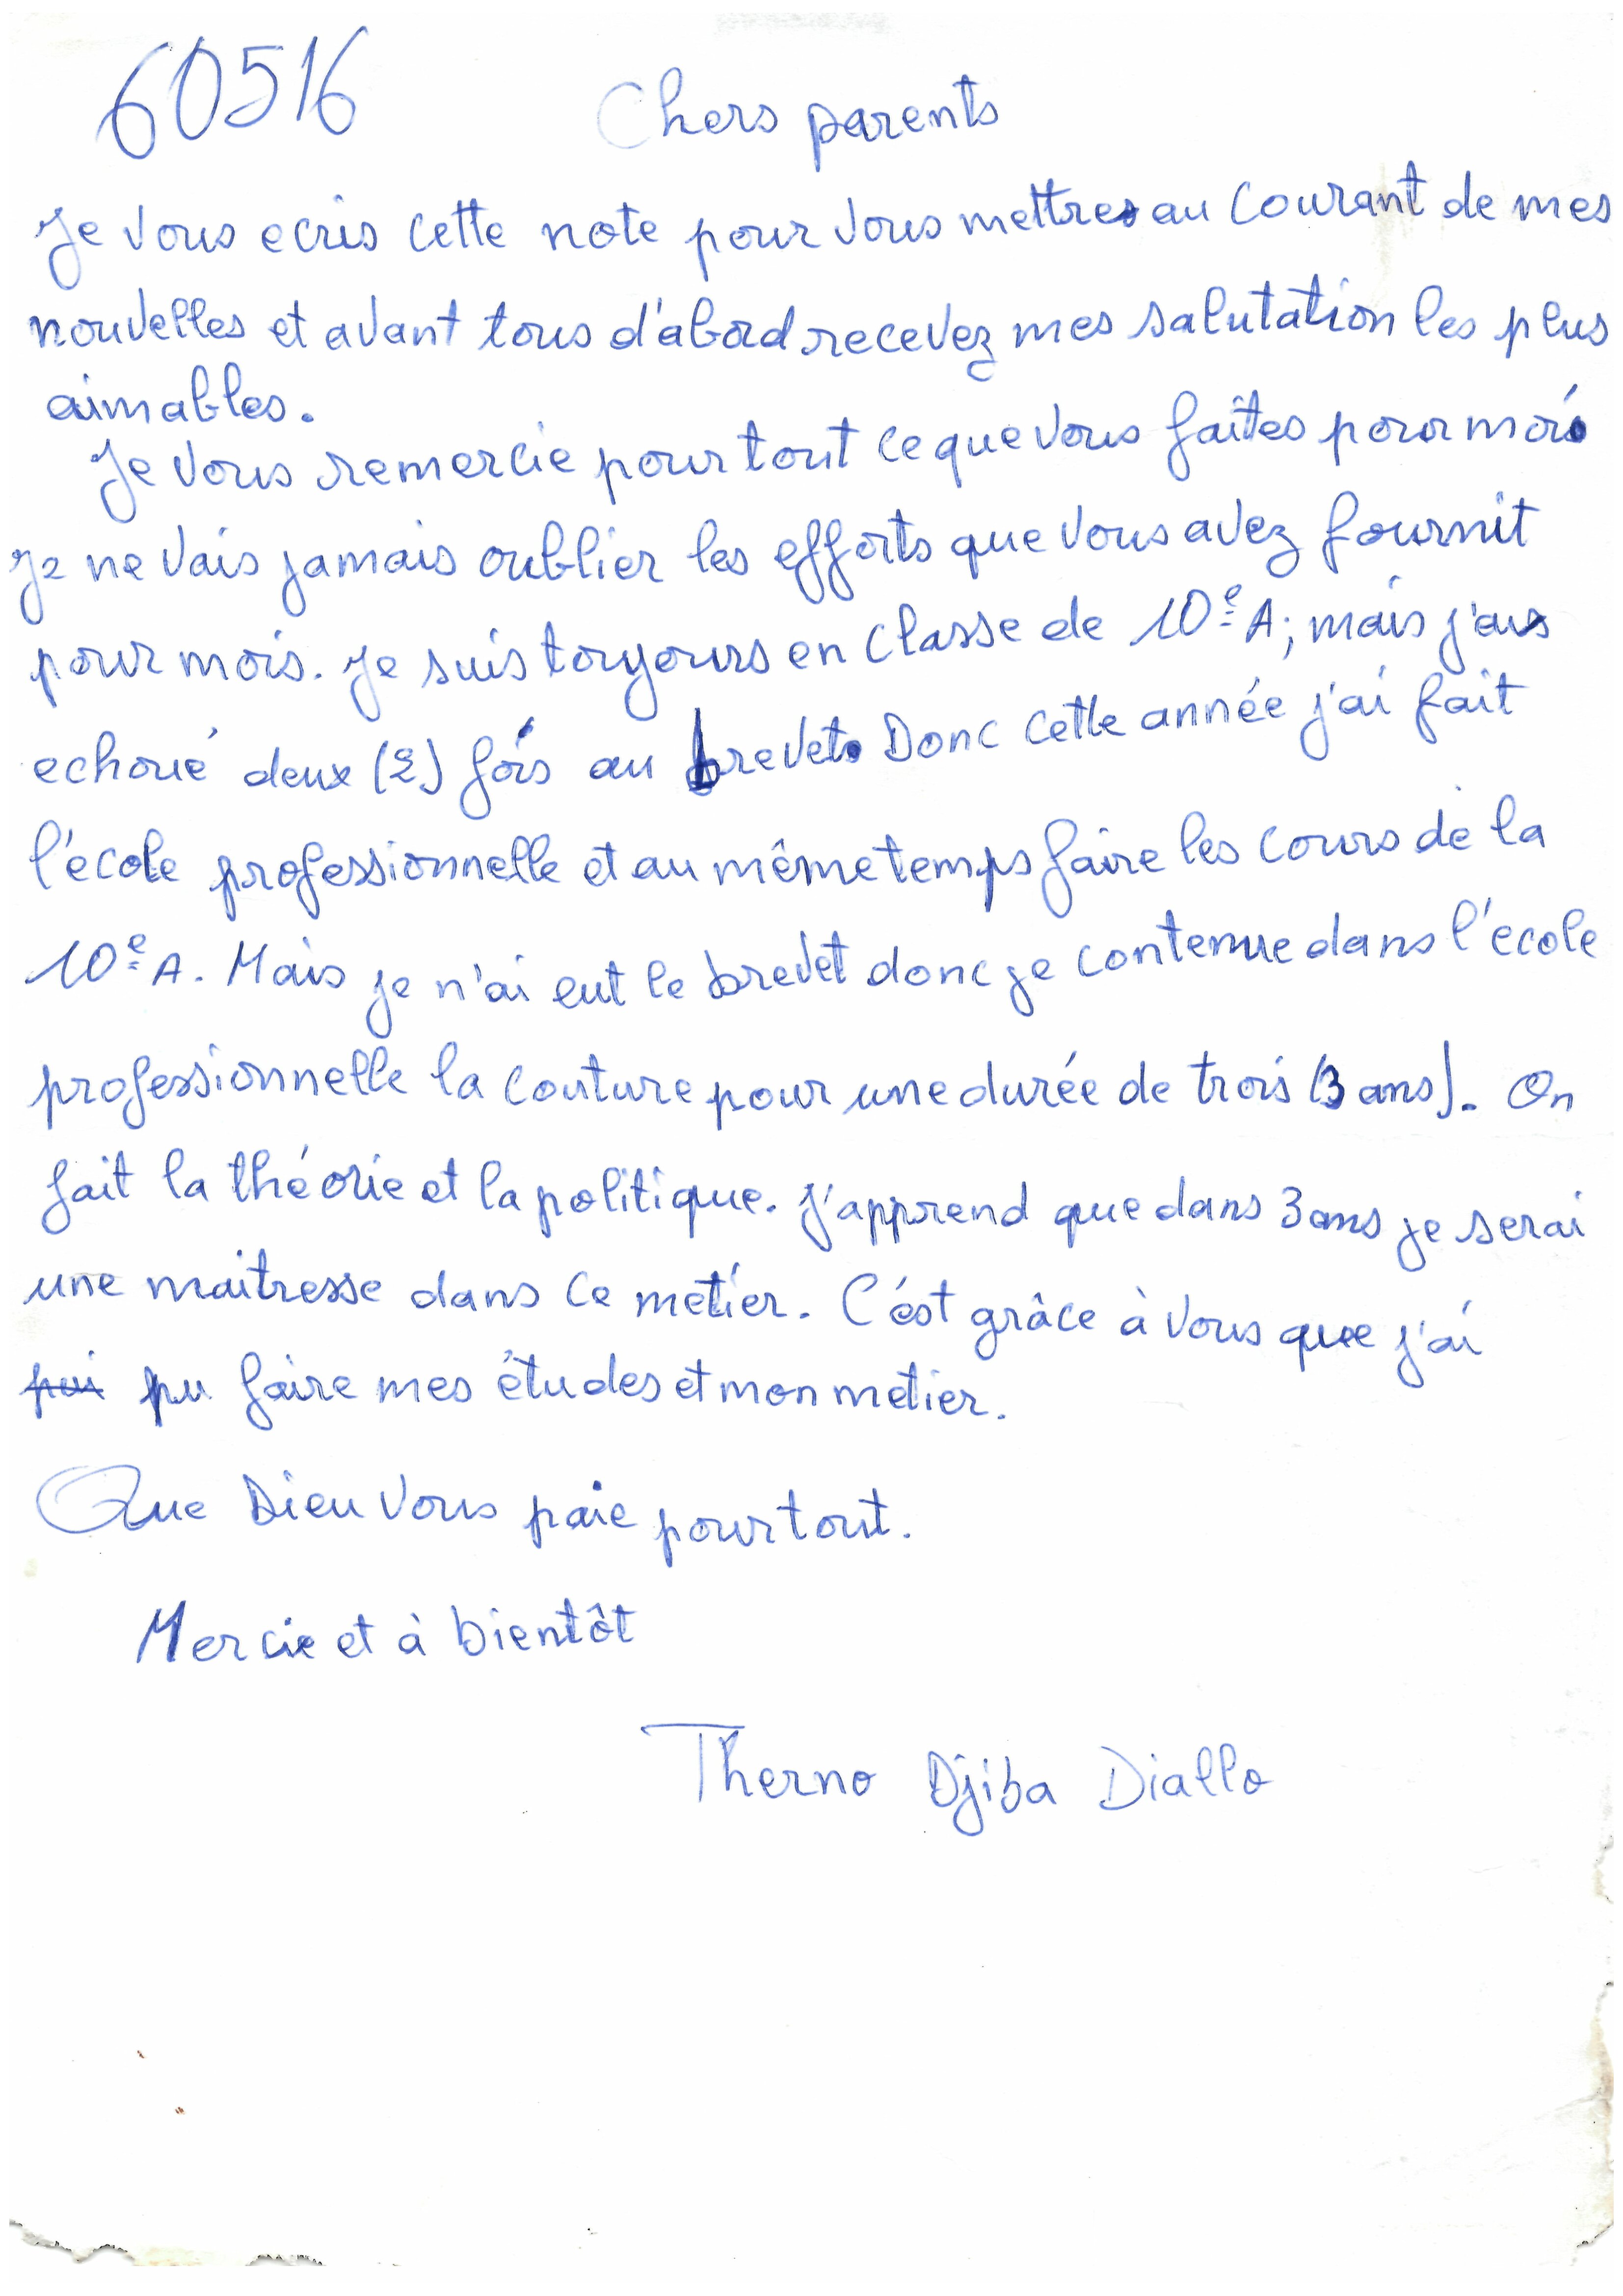 60516
Chers parents
Je vous ecris cette note pour vous mettres au courant de mes
nouvelles et avant tous d'abord recevez mes salutation les plus
aimables.
Je vous remercie pour tout ce que vous faîtes pour moi
Je ne vais jamais oublier les efforts que vous avez fournit
pour mois. Je suis toujours en classe de 10e A; mais j'ai
echoué deux (2) fois au brevet. Donc cette année j'ai fait
l'école professionnelle et au même temps faire les cours de la
10e A. Mais je n'ai eut le brevet donc je contenue dans l'école
professionnelle la couture pour une durée de trois (3 ans). On
fait la théorie et la politique. J'apprend que dans 3 ans je serai
une maitresse dans ce métier. C'ést grâce à vous que j'ai
pui pu faire mes études et mon metier.
Que Dieu vous paie pour tout.
Mercie et à bientôt
Therno Djiba Diallo